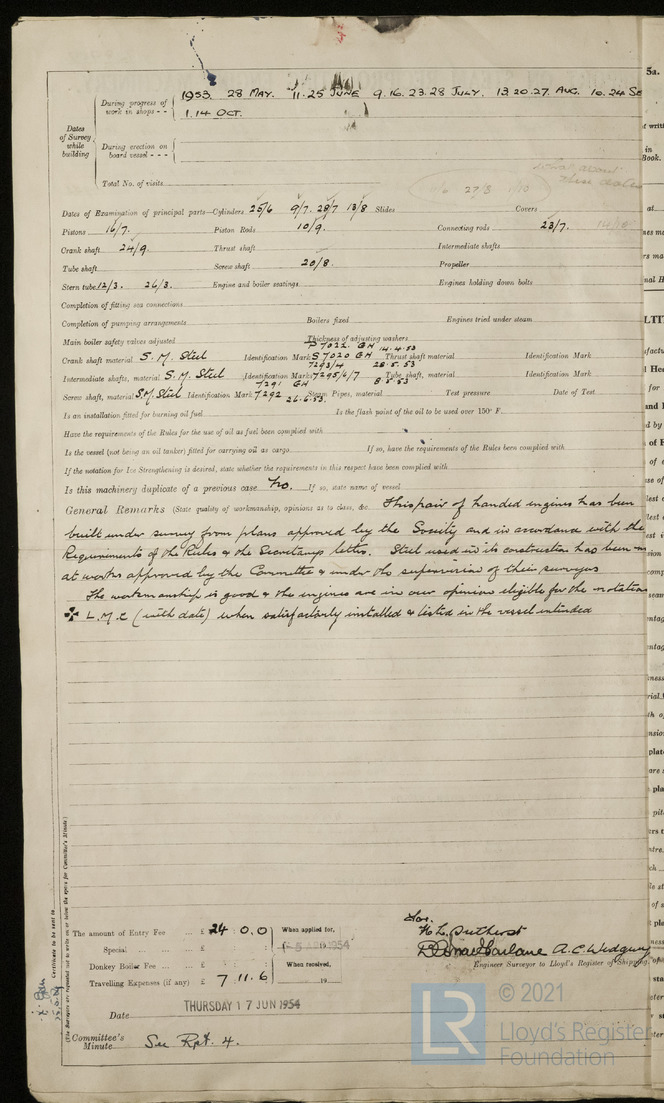 During progress of work in shops - - 1953. 28 MAY. 11.25 JUNE 9.16.23.28 JULY. 13.20.27. AUG. 10.24 Se
1.14 OCT.
Dates of Survey while building
During erection on board vessel - - -
Total No. of visits
27/8
Dates of Examination of principal parts—Cylinders 25/6 9/7. 28/7 13/8 Slides Covers
Pistons 16/7. Piston Rods 10/9. Connecting rods 23/7.
Crank shaft 24/9. Thrust shaft Intermediate shafts
Tube shaft Screw shaft 20/8. Propeller
Stern tube 12/3. 26/3. Engine and boiler seatings Engines holding down bolts
Completion of fitting sea connections
Completion of pumping arrangements Boilers fixed Engines tried under steam
Main boiler safety valves adjusted Thickness of adjusting washers
P 7022 GH 14.4.53
Crank shaft material S. M. Steel Identification Mark S 7020 GH Thrust shaft material Identification Mark
7293/4 28.5.53
Intermediate shafts, material S. M. Steel Identification Marks 7295/6/7 Tube shaft, material Identification Mark
7291 GH 8.5.53
Screw shaft, material S.M. Steel Identification Mark 7292 26.6.53. Steam Pipes, material Test pressure Date of Test
Is an installation fitted for burning oil fuel Is the flash point of the oil to be used over 150° F.
Have the requirements of the Rules for the use of oil as fuel been complied with
Is the vessel (not being an oil tanker) fitted for carrying oil as cargo If so, have the requirements of the Rules been complied with
If the notation for Ice Strengthening is desired, state whether the requirements in this respect have been complied with
Is this machinery duplicate of a previous case No. If so, state name of vessel
General Remarks (State quality of workmanship, opinions as to class, &c. This pair of handed engines has been
built under survey from plans approved by the Society and in accordance with the
Requirements of the Rules & the Secretarys letters. Steel used in its construction has been
at works approved by the Committee & under the supervision of their surveyors
The workmanship is good & the engines are in our opinion eligible for the notation
✠ L.M.C (with date) when satisfactorily installed & tested in the vessel intended
The amount of Entry Fee ... £ 24 : 0 : 0 When applied for,
Special ... £ 1954
Donkey Boiler Fee ... £ When received,
Travelling Expenses (if any) £ 7 : 11 . 6 19
for.
A.C. Widgery
Engineer Surveyor to Lloyd's Register of Shipping.
Date THURSDAY 17 JUN 1954
Committee's Minute See Rpt. 4.
Certificate to be sent to
(The Surveyors are requested not to write on or below the space for Committee's Minute)
5a.
LR
© 2021
Lloyd's Register
Foundation